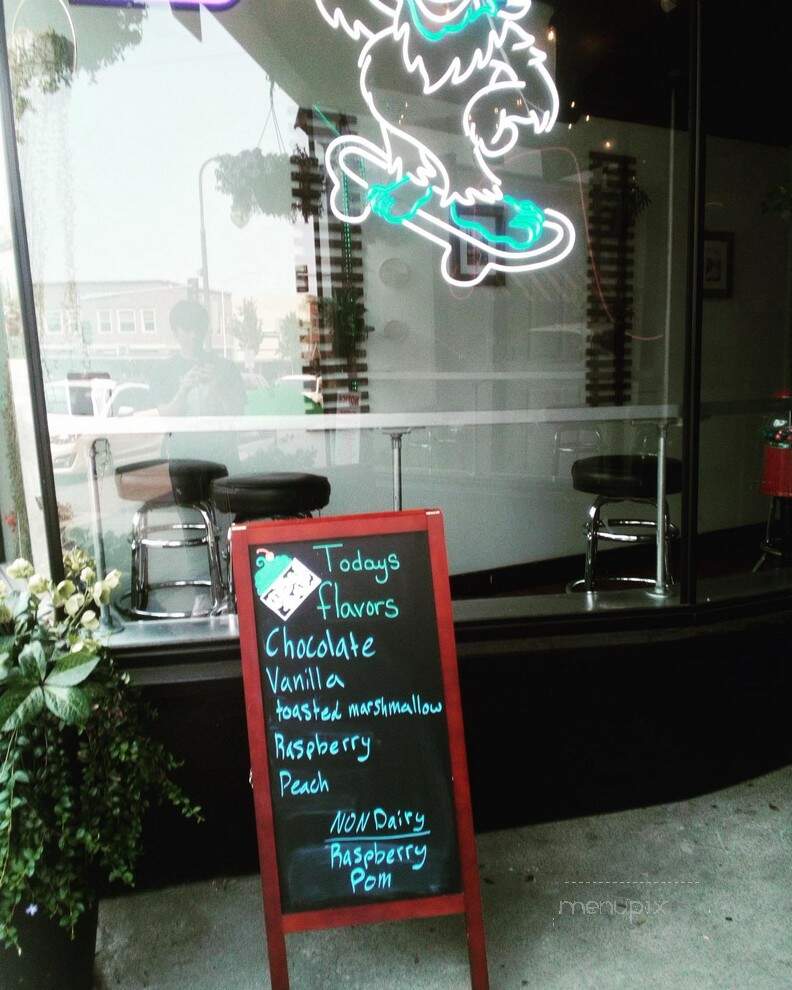 Todays
flavors
Chocolate
Vanilla
toasted marshmallow
Raspberry
Peach
NON Dairy
Raspberry
Pom
menupix